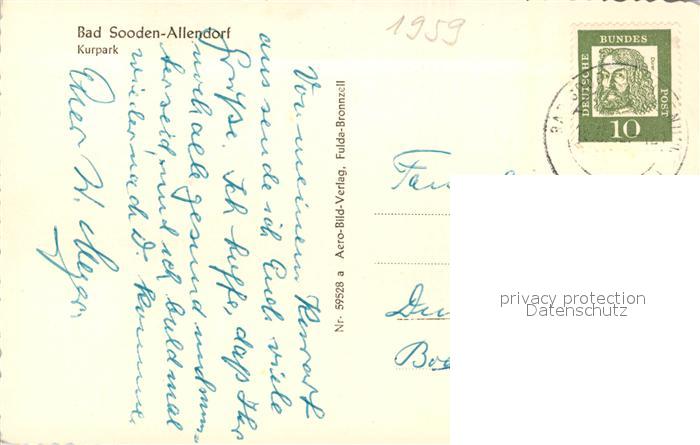 Bad Sooden-Allendorf
Kurpark
1959
DEUTSCHE
BUNDES
POST
Dürer
10
BAD
Von meinem Kurort
aus sende ich Euch viele
Grüße. Ich hoffe, daß Ihr
noch alle gesund und mun-
ter seid und ich bald mal
wieder nach D. komme.
Euer W. Meyer.
Nr. 59528 a Aero-Bild-Verlag, Fulda-Bronnzell
Fam
privacy protection
Datenschutz